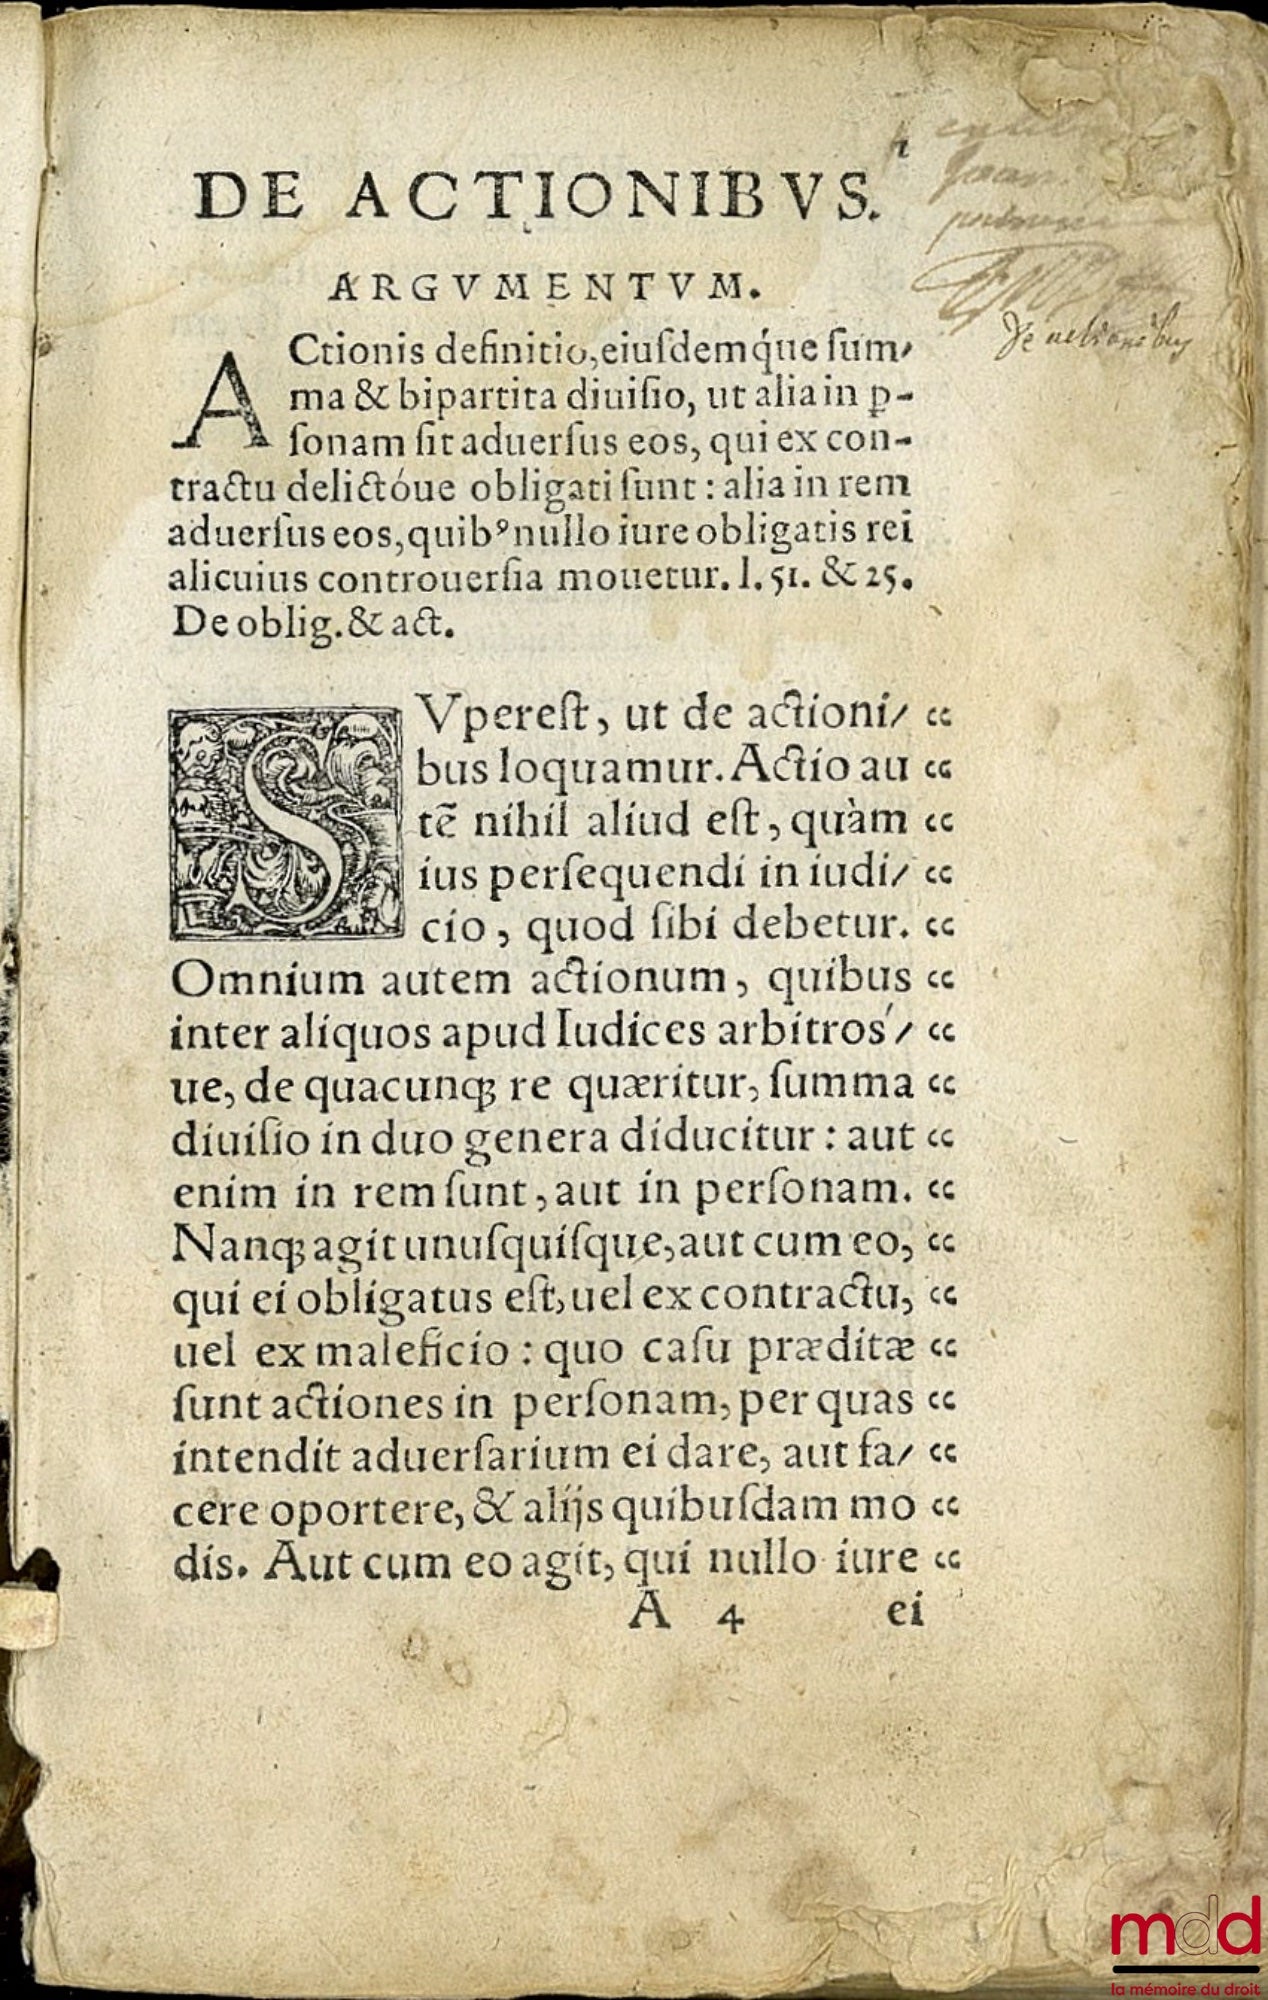 DE ACTIONIBVS.
ARGVMENTVM.
ACtionis definitio, eiuſdemq́ue ſum-
ma & bipartita diuiſio, ut alia in ꝑ-
ſonam ſit aduerſus eos, qui ex con-
tractu delictóue obligati ſunt : alia in rem
aduerſus eos, quibꝰ nullo iure obligatis rei
alicuius controuerſia mouetur. l. 51. & 25.
De oblig. & act.
de actionibus
SVpereſt, ut de actioni- “
bus loquamur. Actio au “
tē nihil aliud eſt, quàm “
ius perſequendi in iudi- “
cio, quod ſibi debetur. “
Omnium autem actionum, quibus “
inter aliquos apud Iudices arbitros´- “
ue, de quacunqꝫ re quæritur, ſumma “
diuiſio in duo genera diducitur : aut “
enim in rem ſunt, aut in perſonam. “
Nanqꝫ agit unuſquiſque, aut cum eo, “
qui ei obligatus eſt, uel ex contractu, “
uel ex maleficio : quo caſu præditæ “
ſunt actiones in perſonam, per quas “
intendit aduerſarium ei dare, aut fa- “
cere oportere, & alijs quibuſdam mo “
dis. Aut cum eo agit, qui nullo iure “
A 4 ei
mdd
la mémoire du droit